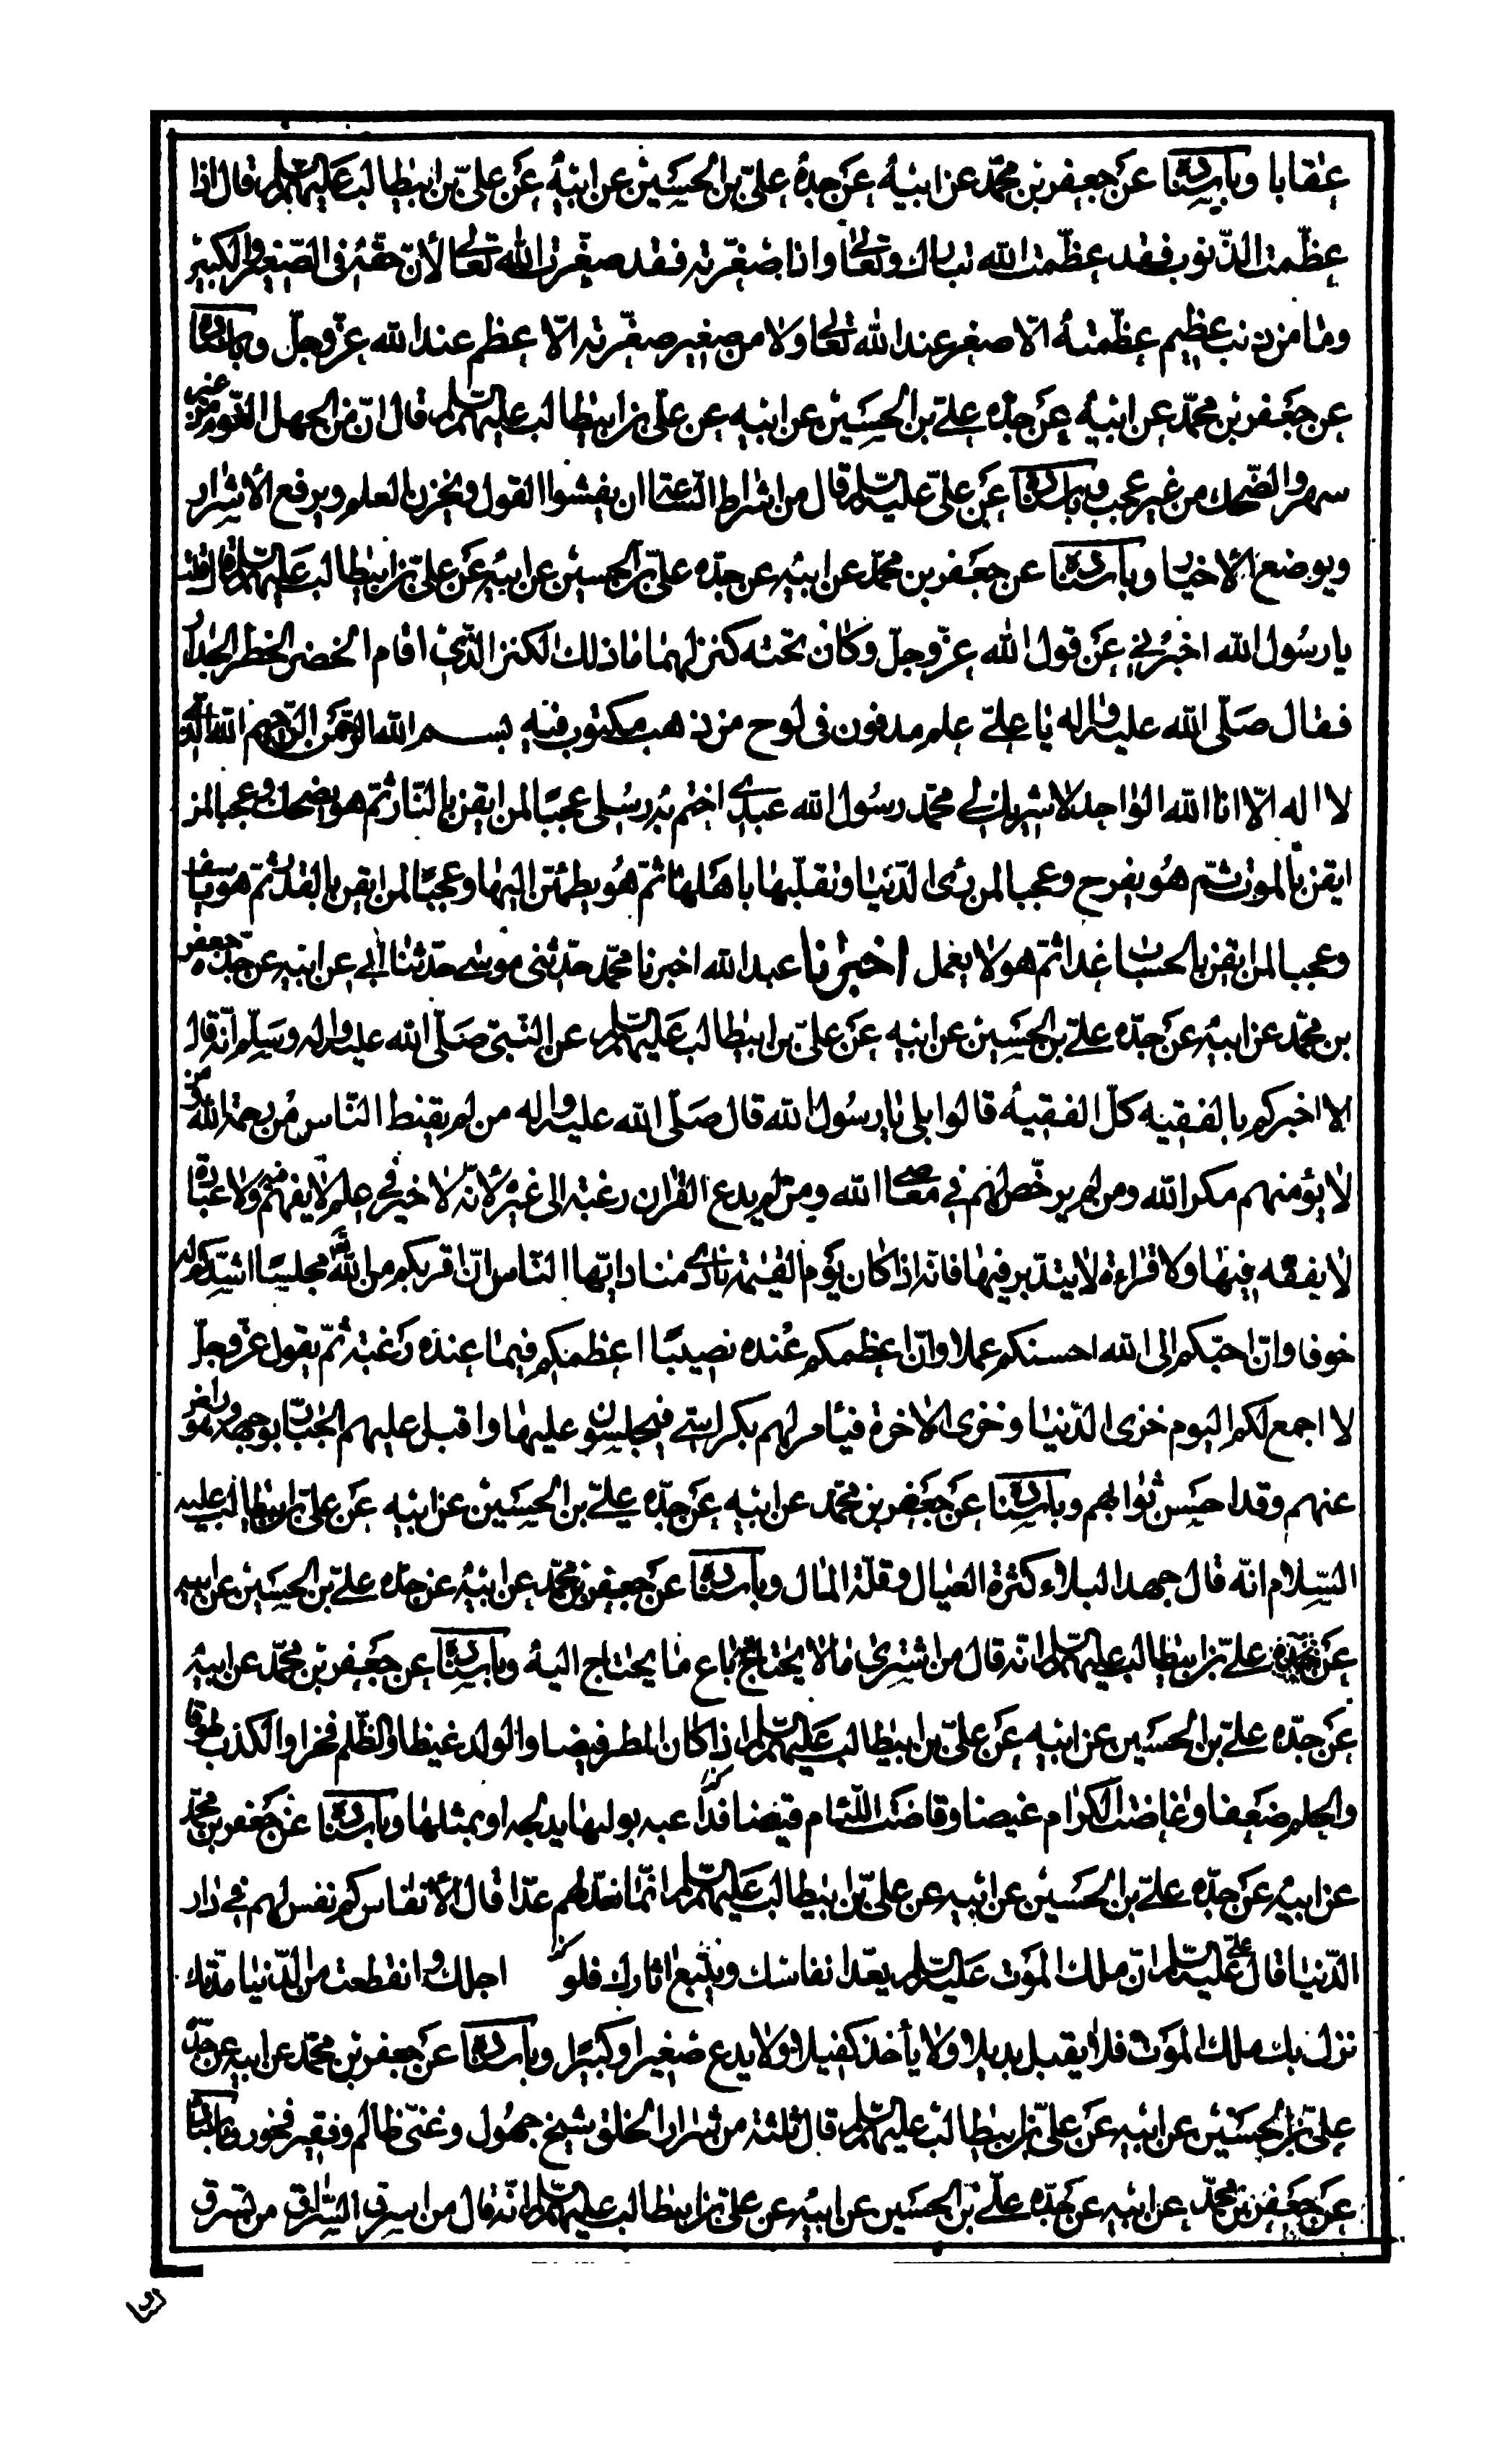 عقابا وباسناده عن جعفر بن محمّد عن ابيه عن جدّه علىّ بن الحسين عن ابيه عن علىّ بن ابيطالب عليهم السّلم قال اذا
عظّمت الذّنوب فقد عظّمت الله تبارك وتعالى واذا صغّرته فقد صغّرت الله تعالى لأنّ حقّه فى الصّغير والكبير
وما من ذنب عظيم عظّمته الّا صغر عند الله تعالى ولا من صغير صغّرته الّا عظم عند الله عزّ وجلّ وباسناده
عن جعفر بن محمّد عن ابيه عن جدّه علىّ بن الحسين عن ابيه عن علىّ بن ابيطالب عليهم السّلم قال انّ من الجهل النّوم من غير
سهر والضّحك من غير عجب وباسناده عن علىّ عليه السّلم قال من اشراط السّاعة ان يفشوا القول ويخزن العلم ويرفع الأشرار
ويوضع الأخيار وباسناده عن جعفر بن محمّد عن ابيه عن جدّه علىّ بن الحسين عن ابيه عن علىّ بن ابيطالب عليهم السّلم قال قلت
يا رسول الله اخبرنى عن قول الله عزّ وجلّ وكان تحته كنز لهما ما ذلك الكنز الّذى اقام الخضر الجدار
فقال صلّى الله عليه واله يا علىّ علم مدفون فى لوح من ذهب مكتوب فيه بسم الله الرّحمن الرّحيم الله الّذى
لا اله الّا انا الله الواحد لا شريك لى محمّد رسول الله عبدى اختم به رسلى عجبا لمن ايقن بالنّار ثمّ هو يضحك وعجبا لمن
ايقن بالموت ثمّ هو يفرح وعجبا لمن رأى الدّنيا وتقلّبها باهلها ثمّ هو يطمئنّ اليها وعجبا لمن ايقن بالقدر ثمّ هو يأسف
وعجبا لمن ايقن بالحساب غدا ثمّ هو لا يعمل اخبرنا عبد الله اخبرنا محمّد حدّثنى موسى حدّثنا ابى عن ابيه عن جدّه جعفر
بن محمّد عن ابيه عن جدّه علىّ بن الحسين عن ابيه عن علىّ بن ابيطالب عليهم السّلم عن النّبىّ صلّى الله عليه واله وسلّم انّه قال
الا اخبركم بالفقيه كلّ الفقيه قالوا بلى يا رسول الله قال صلّى الله عليه واله من لم يقنط النّاس من رحمة الله ومن
لا يؤمنهم مكر الله ومن لم يرخّص لهم فى معاصى الله ومن لم يدع القران رغبة الى غيره لأنّه لا خير فى علم لا يفهم فيه ولا عبادة
لا يفقه فيها ولا قراءة لا يتدبّر فيها فانّه اذا كان يوم القيٰمة نادى مناد ايّها النّاس انّ اقربكم من الله مجلسا اشدّكم له
خوفا وانّ احبّكم الى الله احسنكم عملا وانّ اعظمكم عنده نصيبا اعظمكم فيما عنده رغبة ثمّ يقول عزّ وجلّ
لا اجمع لكم اليوم خزى الدّنيا وخزى الاخرة فيأمر لهم بكراسى فيجلسون عليها واقبل عليهم الجبّار بوجهه وهو راض
عنهم وقد احسن ثوابهم وباسناده عن جعفر بن محمّد عن ابيه عن جدّه علىّ بن الحسين عن ابيه عن علىّ بن ابيطالب عليه
السّلام انّه قال جهد البلاء كثرة العيال وقلّة المال وباسناده عن جعفر بن محمّد عن ابيه عن جدّه علىّ بن الحسين عن ابيه
عن علىّ بن ابيطالب عليهم السّلم انّه قال من اشترى ما لا يحتاج اليه باع ما يحتاج اليه وباسناده عن جعفر بن محمّد عن ابيه
عن جدّه علىّ بن الحسين عن ابيه عن علىّ بن ابيطالب عليهم السّلم اذا كان المطر فيضا والولد غيظا والظّلم فخرا والكذب
والحلم ضعفا وغاضت الكرام غيضا وفاضت اللّئام فيضا وباسناده عن جعفر بن محمّد
عن ابيه عن جدّه علىّ بن الحسين عن ابيه عن علىّ بن ابيطالب عليهم السّلم انّما نعدّ لهم عدّا قال الأنفاس كم نفس لهم فى دار
الدّنيا قال علىّ عليه السّلم انّ ملك الموت عليه السّلم يعدّ انفاسك ويتّبع اثارك فلو اجلك وانقطعت من الدّنيا مدّتك
نزل بك ملك الموت فلا يقبل بديلا ولا يأخذ كفيلا ولا يدع صغيرا وكبيرا وباسناده عن جعفر بن محمّد عن ابيه عن جدّه
علىّ بن الحسين عن ابيه عن علىّ بن ابيطالب عليهم السّلم قال ثلثة من شرار الخلق شيخ جهول وغنىّ ظالم وفقير فخور وباسناده
عن جعفر بن محمّد عن ابيه عن جدّه علىّ بن الحسين عن ابيه عن علىّ بن ابيطالب عليهم السّلم انّه قال من اسرق السّراق من سرق